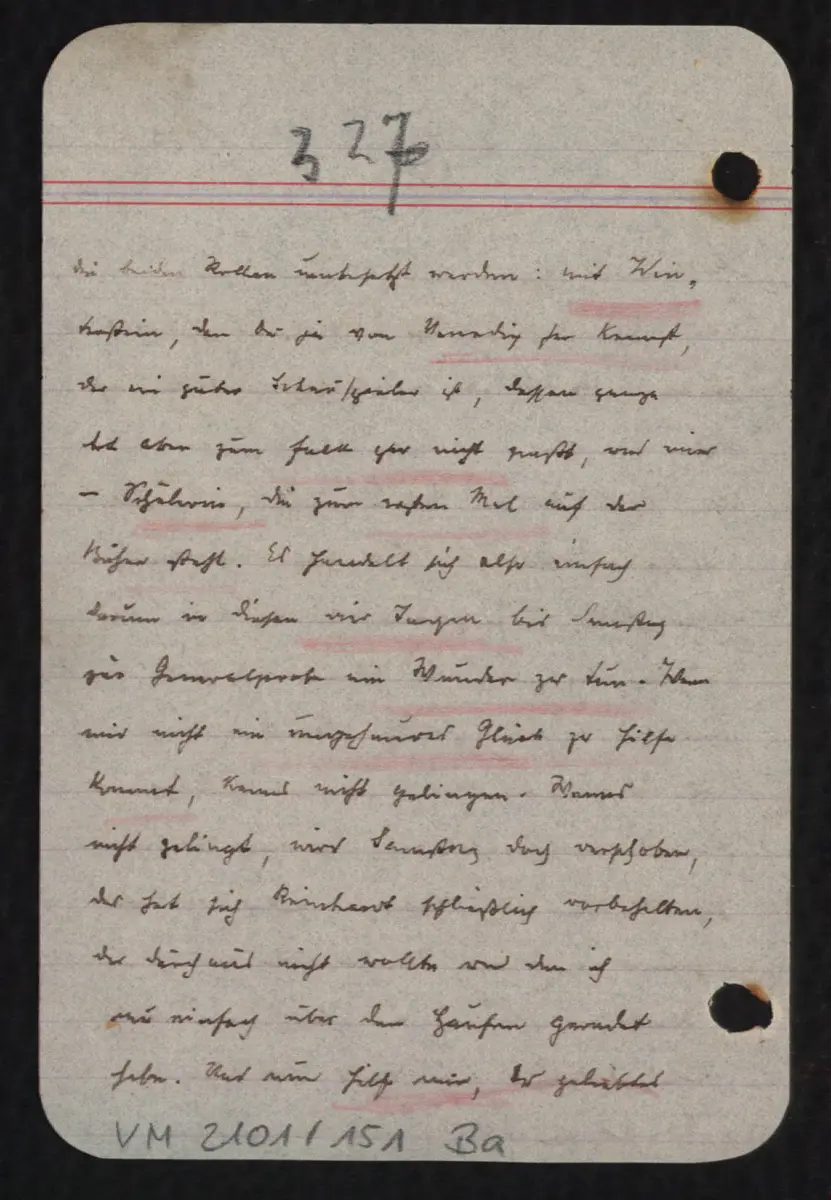 327
die beiden Rollen umbesetzt werden: mit Win-
terstein, den Du ja von Venedig her kennst,
der ein guter Schauspieler ist, dessen ganze
Art aber zum Fall gar nicht paßt, und einer
– Schülerin, die zum ersten Mal auf der
Bühne steht. Es handelt sich also einfach
darum in diesen vier Tagen bis Samstag
zur Generalprobe ein Wunder zu tun. Wenn
mir nicht ein ungeheures Glück zu Hilfe
kommt, kanns nicht gelingen. Wenns
nicht gelingt, wird Samstag doch verschoben,
das hat sich Reinhardt schließlich vorbehalten,
der durchaus nicht wollte und den ich
nur einfach über den Haufen geredet
habe. Und nun hilf mir, Du geliebtes
VM 2101/151 Ba